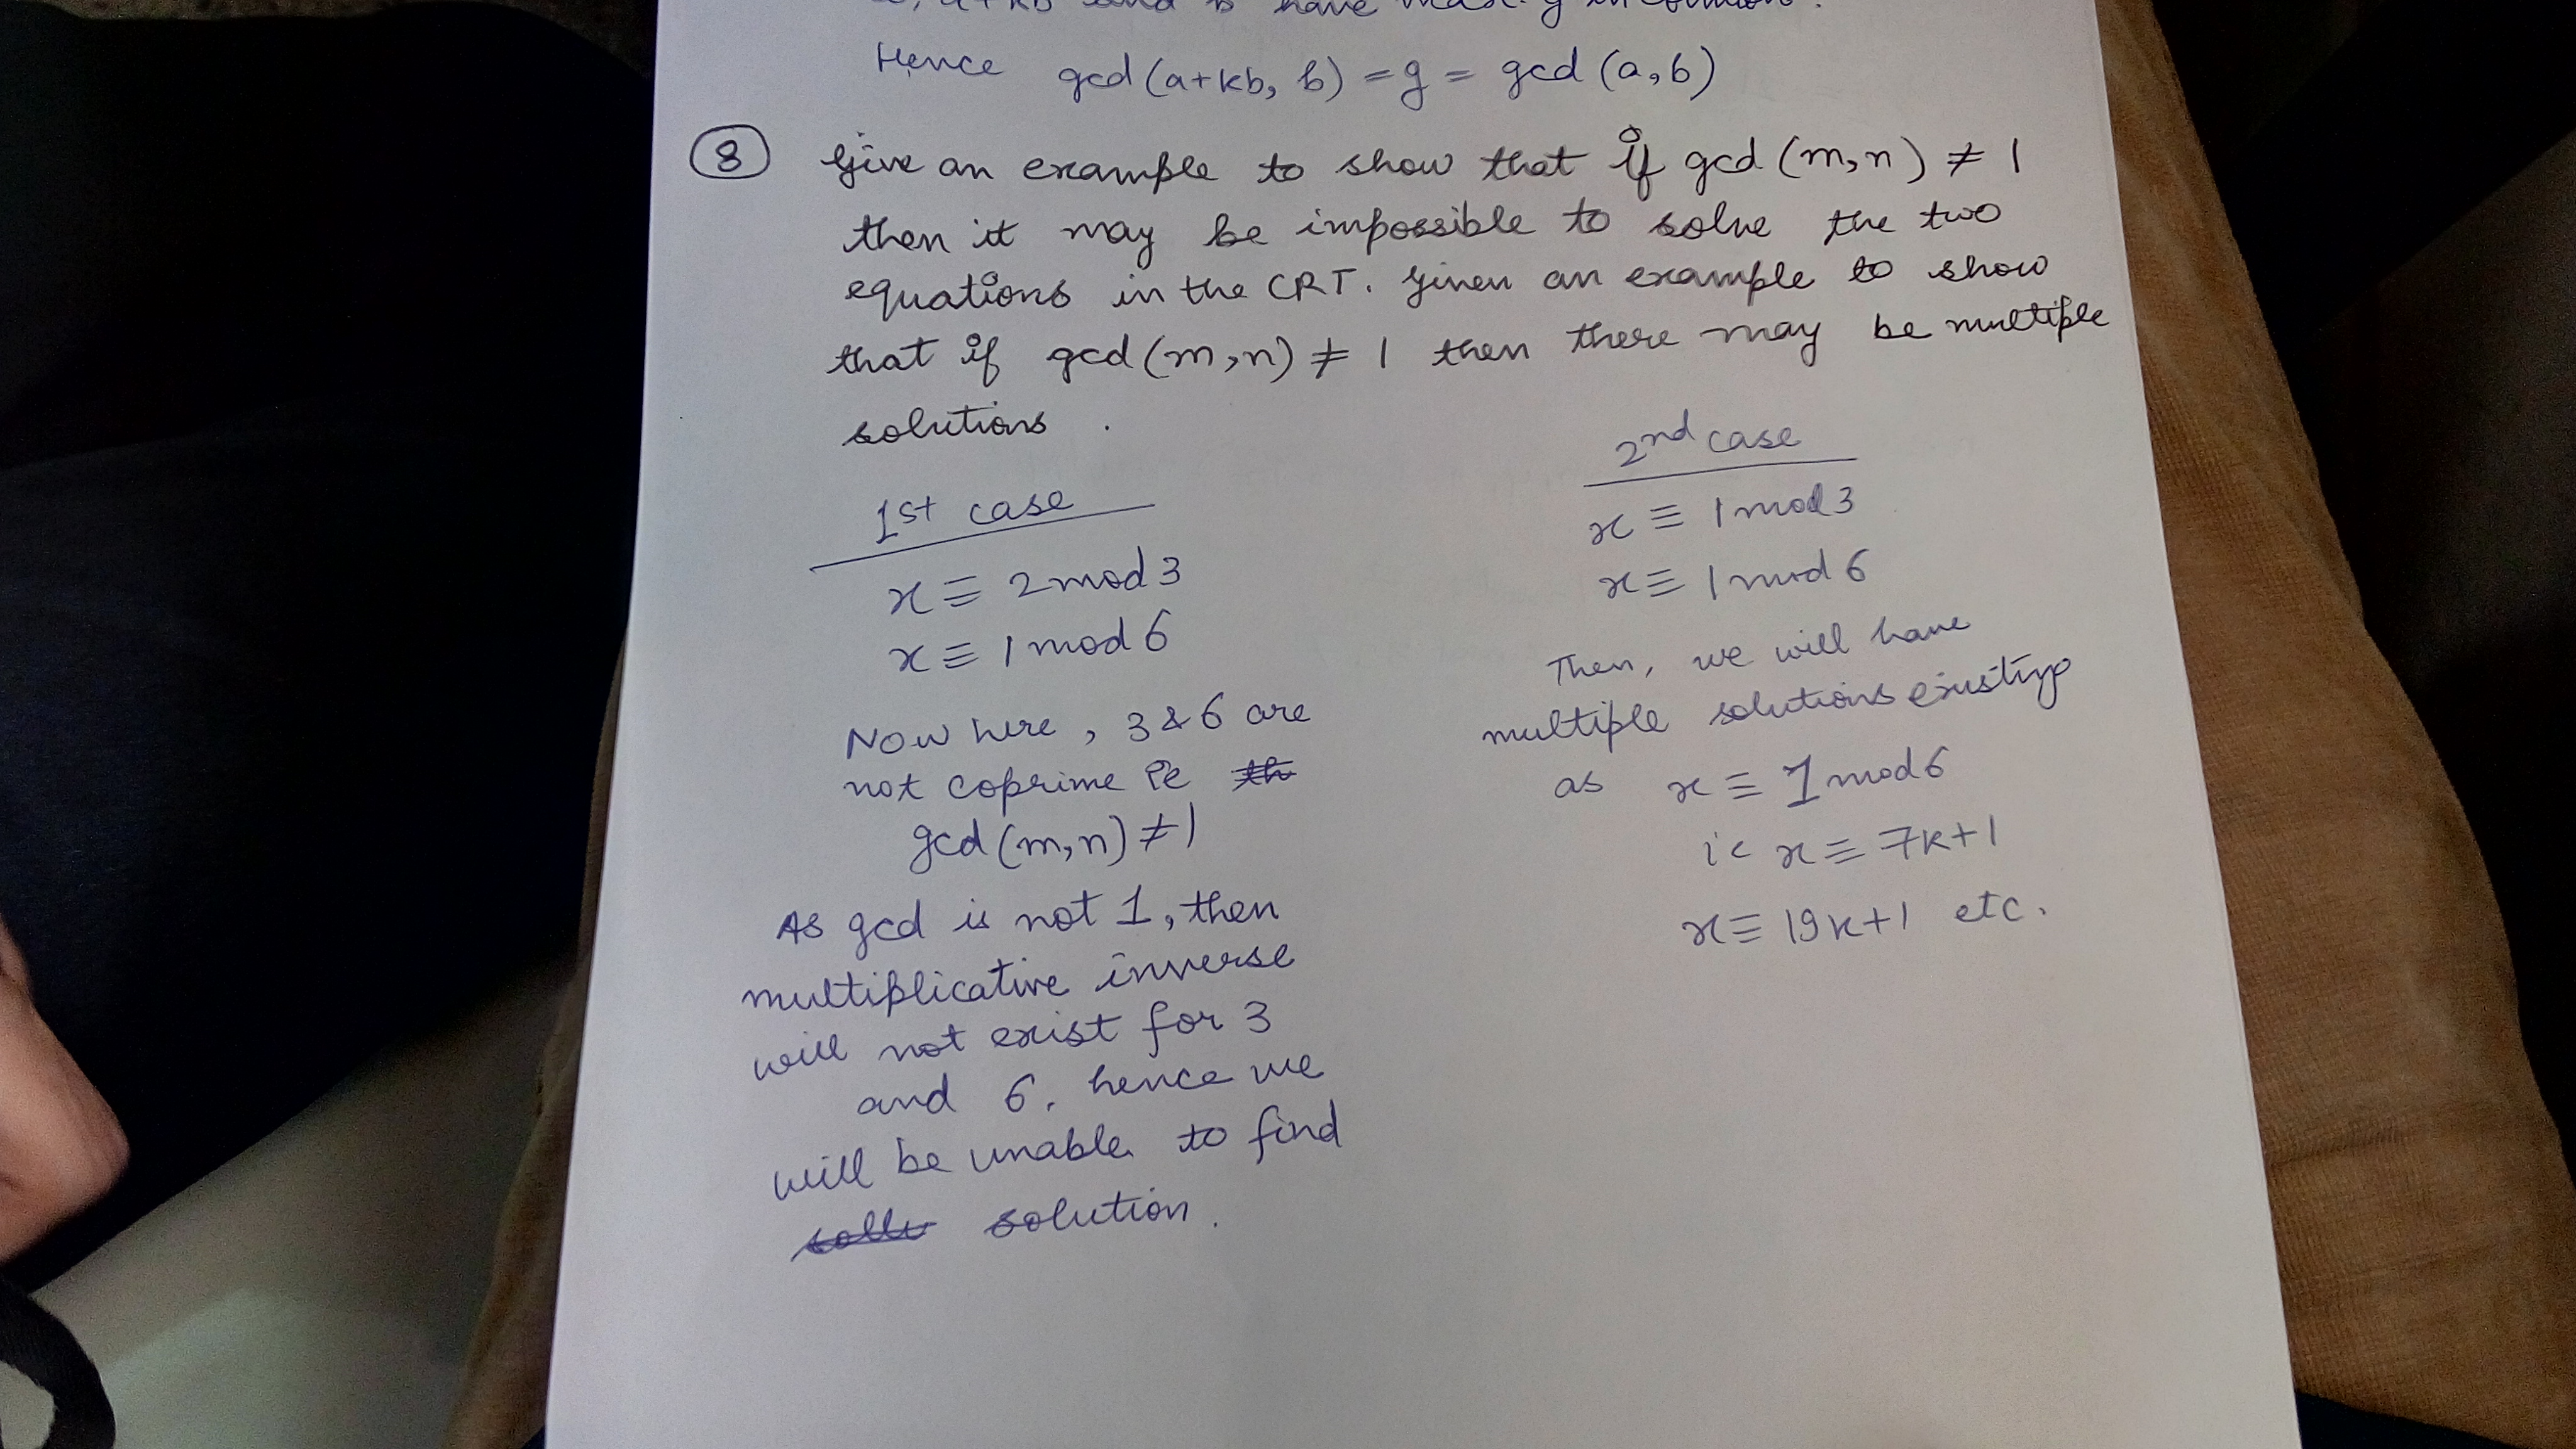 a+kb and b have max. g in common.
Hence gcd(a+kb, b) = g = gcd(a,b)
8 Give an example to show that if gcd(m,n) ≠ 1
then it may be impossible to solve the two
equations in the CRT. Given an example to show
that if gcd(m,n) ≠ 1 then there may be multiple
solutions.
1st case
x ≡ 2 mod 3
x ≡ 1 mod 6
Now here, 3 & 6 are
not coprime ie
gcd(m,n) ≠ 1
As gcd is not 1, then
multiplicative inverse
will not exist for 3
and 6. hence we
will be unable to find
solution.
2nd case
x ≡ 1 mod 3
x ≡ 1 mod 6
Then, we will have
multiple solutions existing
as x ≡ 1 mod 6
ie x ≡ 7k+1
x ≡ 19k+1 etc.